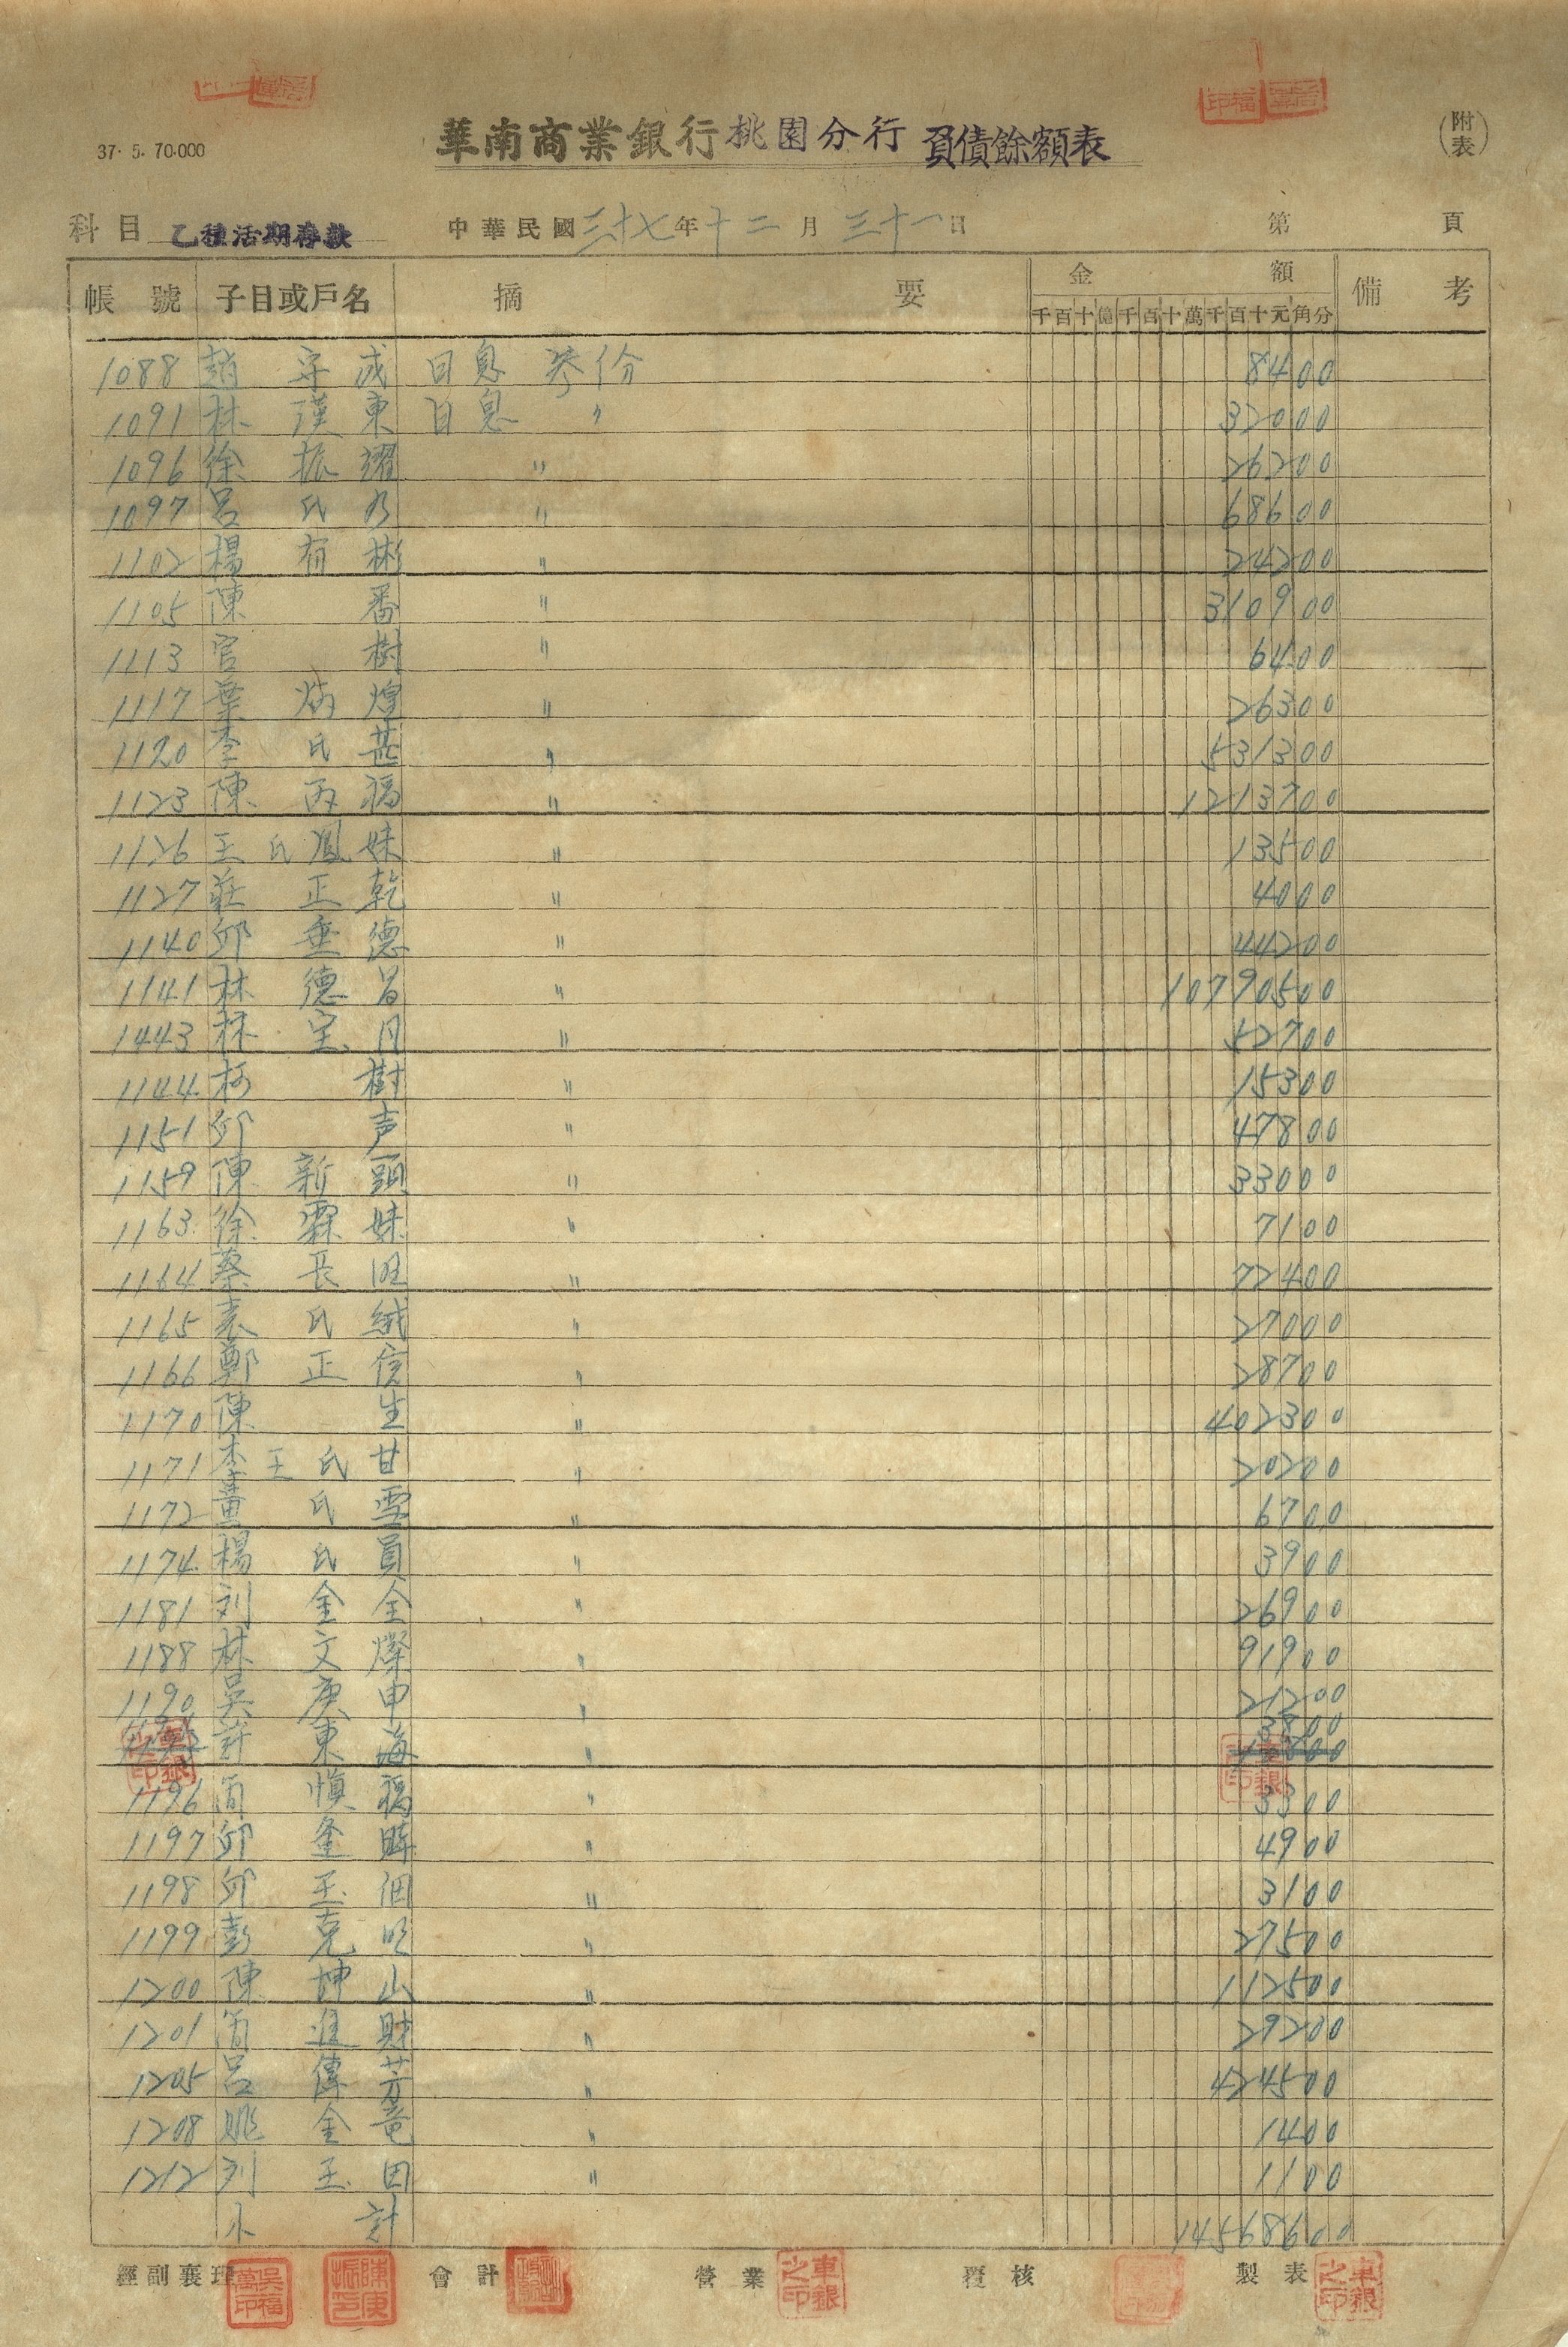 37. 5. 70.000
華南商業銀行桃園分行 負債餘額表
(附表)
科目 乙種活期存款 中華民國三十七年十二月三十一日 第 頁
帳號 子目或戶名 摘要 金額 備考
千百十億千百十萬千百十元角分
1088 趙守成 日息參份 8400
1091 林漢東 日息 〃 32000
1096 徐振耀 〃 26200
1097 呂氏乃 〃 68600
1102 楊有彬 〃 24200
1105 陳番 〃 310900
1113 官樹 〃 6400
1117 葉炳煌 〃 26300
1120 李氏甚 〃 531300
1123 陳丙福 〃 1213700
1126 王氏鳳妹 〃 13500
1127 莊正乾 〃 4000
1140 邱垂德 〃 44200
1141 林德昌 〃 10790500
1443 林宝月 〃 52700
1144 柯樹 〃 15300
1151 邱声 〃 47800
1159 陳新頭 〃 33000
1163 徐霖妹 〃 7100
1164 蔡長旺 〃 72400
1165 袁氏絨 〃 27000
1166 鄭正信 〃 28700
1170 陳生 〃 402300
1171 李王氏甘 〃 20200
1172 黃氏雪 〃 6700
1174 楊氏員 〃 3900
1181 刘金全 〃 26900
1188 林文燦 〃 91900
1190 吳庚申 〃 21200
許東海 〃 3800
1196 簡慎福 〃 3300
1197 邱奎 〃 4900
1198 邱玉 〃 3100
1199 彭克 〃 27500
1200 陳坤山 〃 112500
1201 簡進財 〃 29200
1205 呂傳芳 〃 424500
1208 姚金竜 〃 1400
1212 刘玉因 〃 1100
小計 14568600
經副襄理 會計 營業 覆核 製表